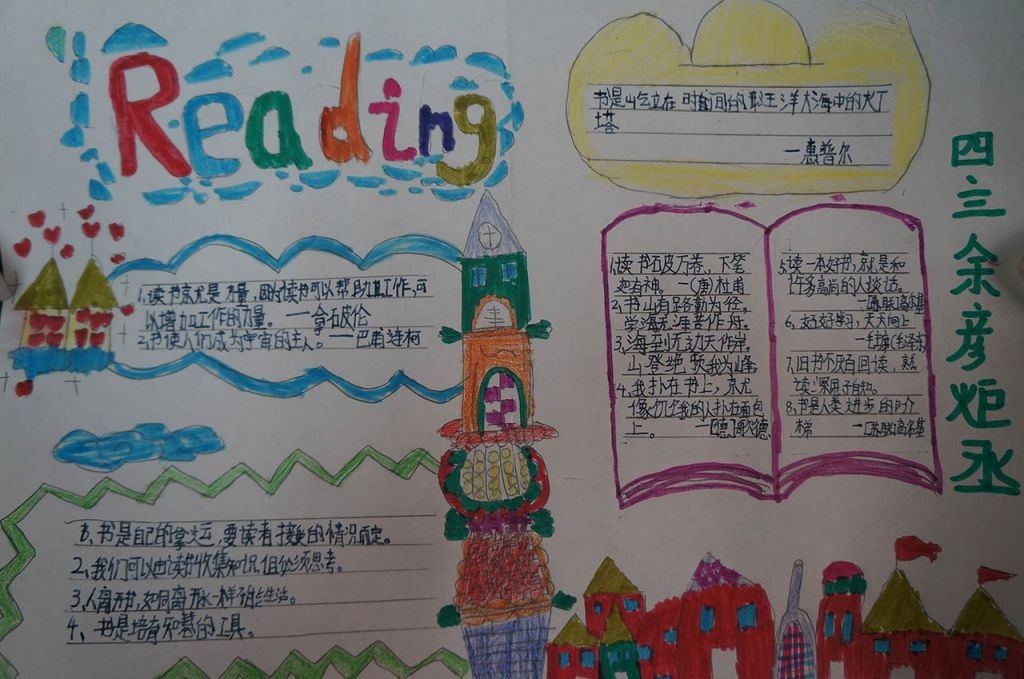 Reading
书是屹立在时间的那汪洋大海中的大丁
塔
—惠普尔
四三余彦炬丞
1、读书就是力量,因为读书可以帮助其工作,可
以增加工作的力量。——拿破伦
2、书使人们成为宇宙的主人。——巴甫连柯
1、读书破万卷,下笔
如有神。—(唐)杜甫
2、书山有路勤为径,
学海无涯苦作舟。
3、海到无边天作岸,
山登绝顶我为峰
4、我扑在书上,就
像饥饿的人扑在面包
上。—[德]
5、读一本好书,就是和
许多高尚的人谈话。
—[苏联]高尔基
6、好好学习,天天向上
—毛泽东
7、旧书不厌百回读,熟
读深思子自知。
8、书是人类进步的阶
梯 —[苏联]高尔基
书是自己的掌运,要读者接受的情况而定。
2、我们可以由读书收集知识但必须思考。
3、人离开书,如同离开水一样不能生活。
4、书是培育知慧的工具。